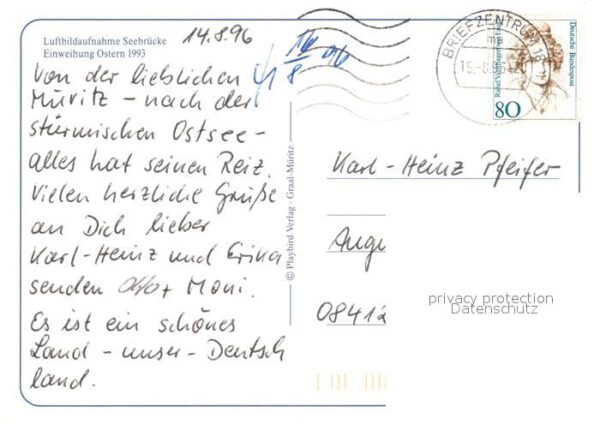 14.8.96
Luftbildaufnahme Seebrücke
Einweihung Ostern 1993
16/8 96
Von der lieblichen
Müritz – nach der
stürmischen Ostsee –
alles hat seinen Reiz.
Vielen herzliche Grüße
an Dich lieber
Karl-Heinz und Erika
senden Otto + Moni.
Es ist ein schönes
Land – unser – Deutsch
land.
© Playbird Verlag · Graal-Müritz
BRIEFZENTRUM 18
ma
Deutsche Bundespost
80
Karl-Heinz Pfeifer
Auge
08412
privacy protection
Datenschutz